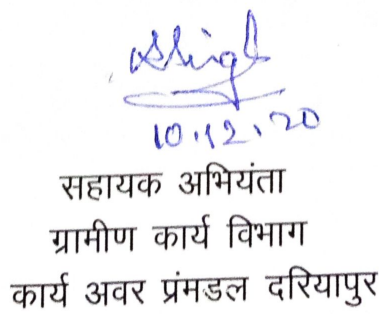 SSingh
10.12.20
सहायक अभियंता
ग्रामीण कार्य विभाग
कार्य अवर प्रंमडल दरियापुर